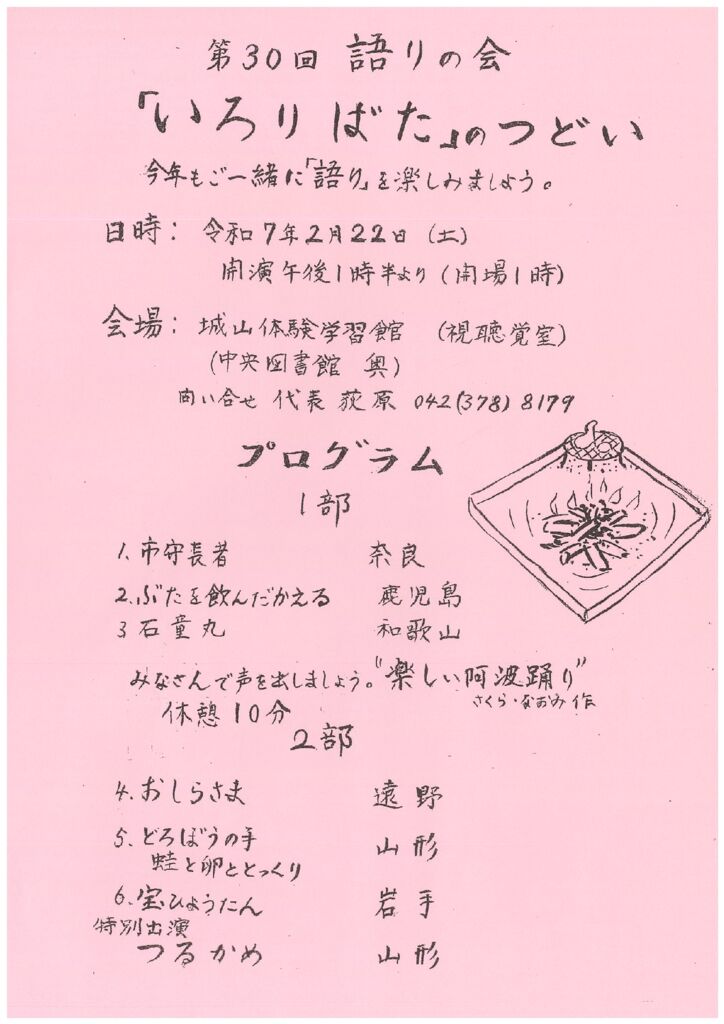 第30回 語りの会
「いろりばた」のつどい
今年もご一緒に「語り」を楽しみましょう。
日時: 令和7年2月22日 (土)
開演午後1時半より (開場1時)
会場: 城山体験学習館 (視聴覚室)
(中央図書館 奥)
問い合せ 代表 荻原 042(378)8179
プログラム
1部
1. 市守長者 奈良
2. ぶたを飲んだかえる 鹿児島
3 石童丸 和歌山
みなさんで声を出しましょう。"楽しい阿波踊り"
さくら・なおみ 作
休憩10分
2部
4. おしらさま 遠野
5. どろぼうの手 山形
蛙と卵ととっくり
6. 宝ひょうたん 岩手
特別出演
つるかめ 山形